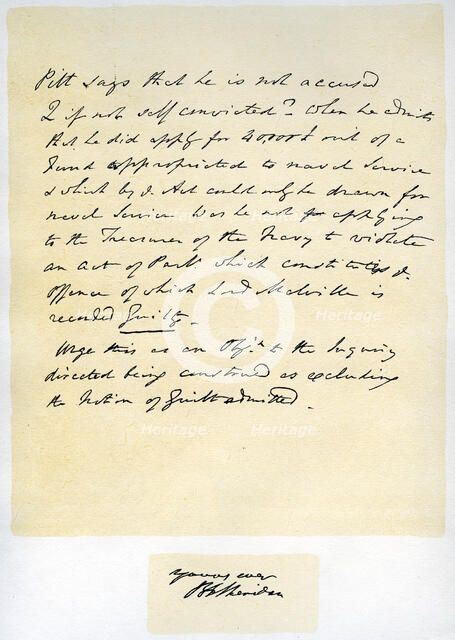 Pitt says that he is not accused
Q if not self convicted? When he admits
that he did apply for 40,000£ out of a
Fund appropriated to naval Service
& which by ye. Act could only be drawn for
naval Service was he not applying
to the Treasurer of the Navy to violate
an act of Parlt. which constitutes ye.
offence of which Lord Melville is
recorded Guilty.
Urge this as an Objn. to the Inquiry
directed being construed as excluding
the Notion of Guilt admitted.
yours ever
RBSheridan
Heritage
Heritage
Heritage
Heritage